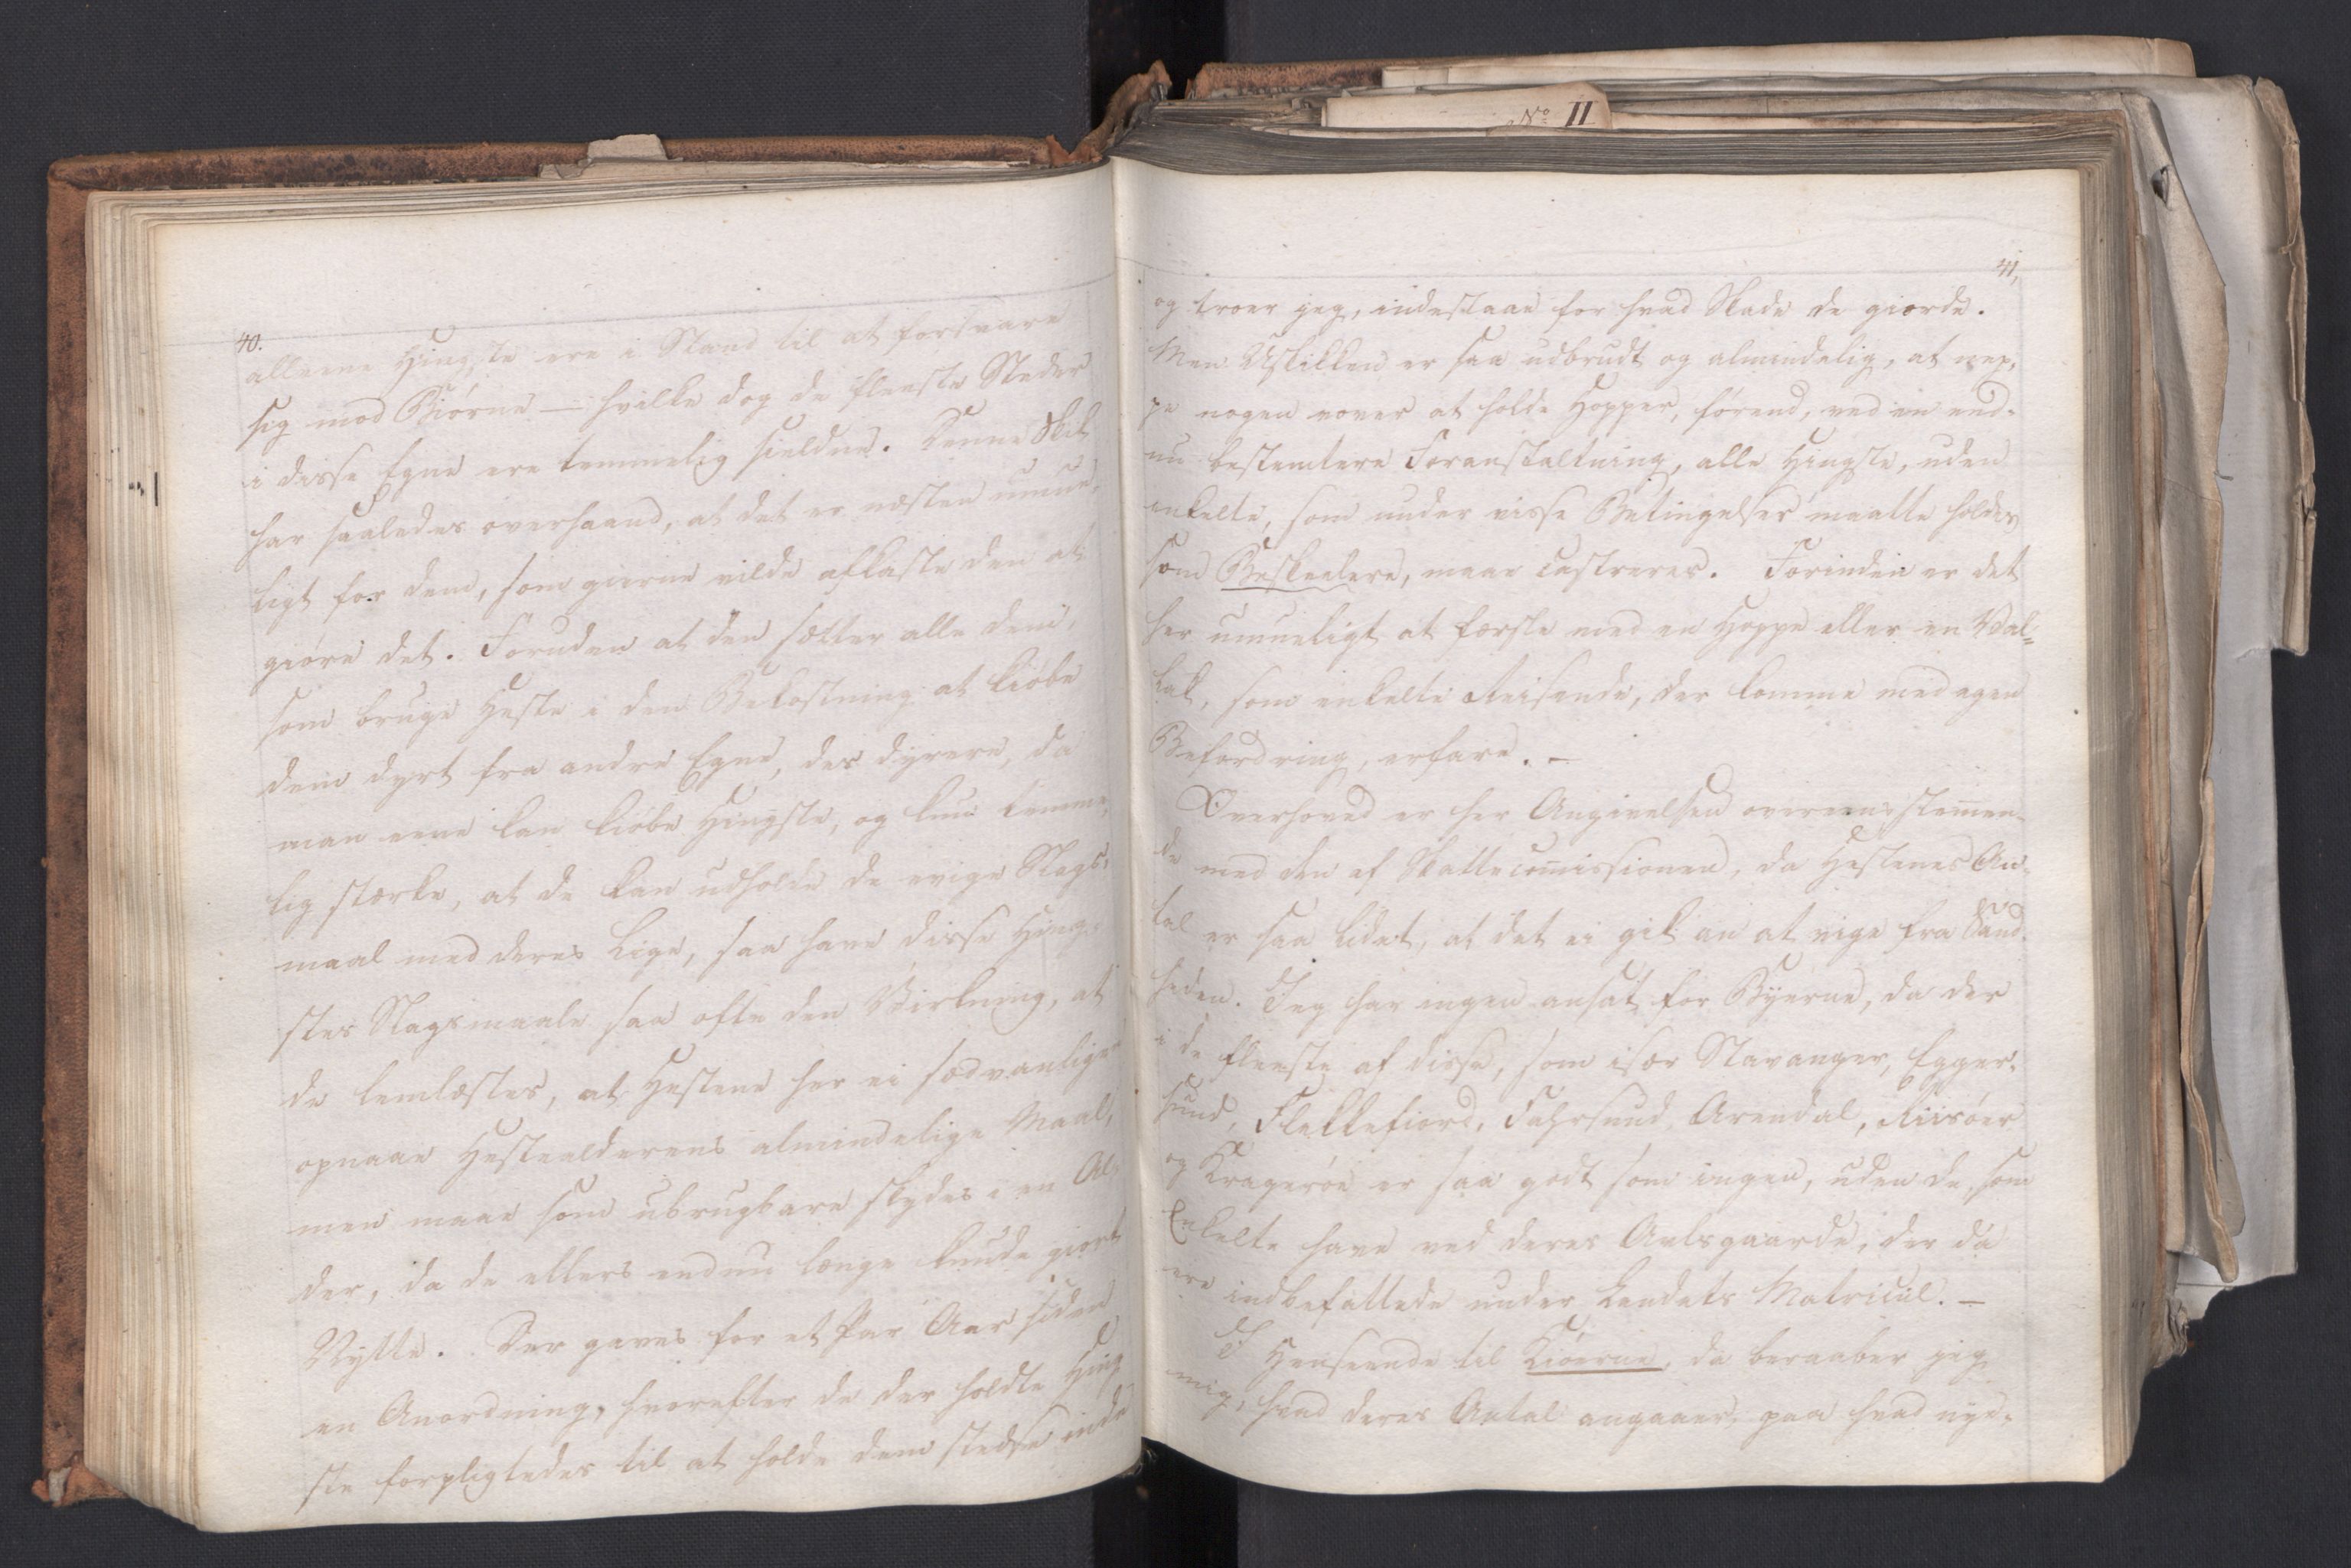 No II
40.
alleene Hingste ere i Stand til at forsvare
sig mod Biørne — hvilke dog de fleeste Steder
i disse Egne ere temmelig sieldne. Denne Skik
har saaledes overhaand, at det er næsten umue-
ligt for dem, som gierne vilde afkaste den at
giøre det. Foruden at den sætter alle dem,
som bruge Heste i den Bekostning at kiøbe
dem dyrt fra andre Egne, des dyrere, da
man eene kan kiøbe Hingste, og kun temme-
lig stærke, at de kan udholde de evige Slags-
maal med deres Lige, saa have disse Hing-
stes Slagsmaale saa ofte den Virkning, at
de lemlæstes, at Hestene her ei sædvanligen
opnaae Hestealderens almindelige Maal,
men maae som ubrugbare skydes i en Al-
der, da de ellers endnu længe kunde giort
Nytte. Der gaves for et Par Aar siden
en Anordning, hvorefter de der holdte Hing-
ste forpligtedes til at holde dem stedse inde
41.
og troer jeg, indestaae for hvad Skade de giorde.
Men Uskikken er saa udbrudt og almindelig, at nep-
pe nogen vover at holde Hopper, førend, ved en end-
nu bestemtere Foranstaltning, alle Hingste, uden
enkelte, som under visse Betingelser maatte holdes
som Beskeelere, maae castreres. Forinden er det
her umueligt at færste med en Hoppe eller en Val-
lak, som enkelte Reisende, der komme med egen
Befordring, erfare. —
Overhoved er her Angivelsen overeensstemen-
de med den af Skattecomissionen, da Hestenes An-
tal er saa lidet, at det ei gik an at vige fra Sand-
heden. Jeg har ingen ansat for Byerne, da der
i de fleeste af disse, som især Stavanger, Egger-
sund, Flekkefiord, Fahrsund, Arendal, Riisøer
og Kragerøe er saa godt som ingen, uden de, som
Enkelte have ved deres Avlsgaarde, der da
ere indbefattede under Landets Matricul. —
I Henseende til Kiøerne, da beraaber jeg
mig, hvad deres Antal angaaer, paa hvad nye-